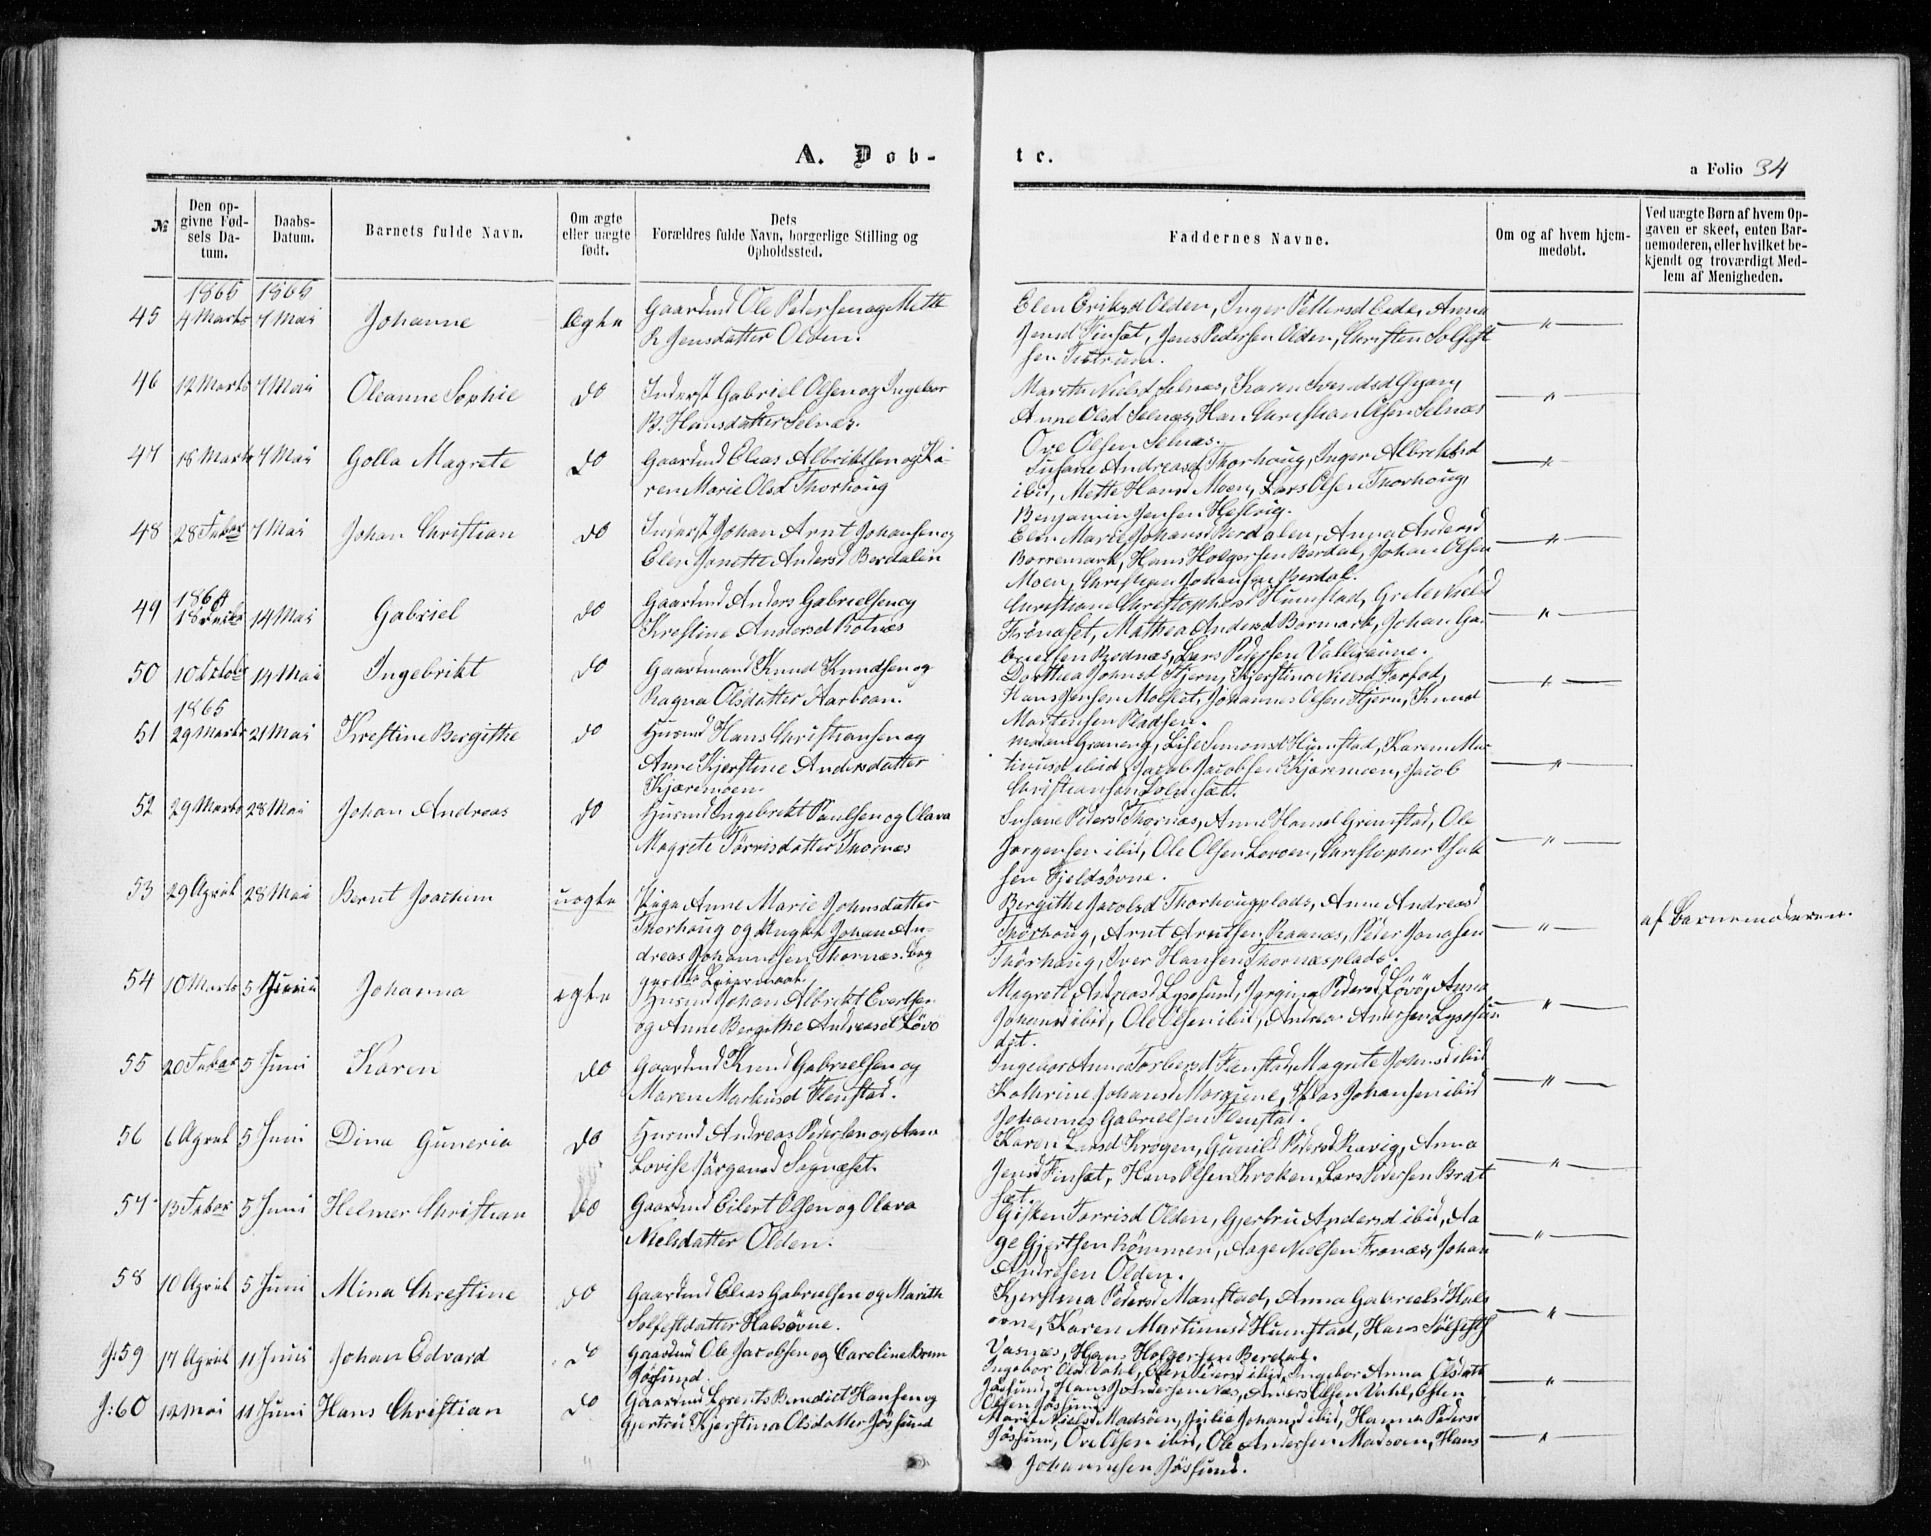 A. Dob-
te.
a Folio 34
№
Den op-
givne Fød-
sels Da-
tum.
Daabs-
Datum.
Barnets fulde Navn.
Om ægte
eller uægte
født.
Dets
Forældres fulde Navn, borgerlige Stilling og
Opholdssted.
Faddernes Navne.
Om og af hvem hjem-
medøbt.
Ved uægte Børn af hvem Op-
gaven er skeet, enten Bar-
nemoderen, eller hvilket be-
kjendt og troværdigt Med-
lem af Menigheden.
1865 1865
45 4 Marts 7 Mai Johanne Ægte Gaardmd Ole Pedersen og Mette
R Jensdatter Olden.
Elen Eriksd Olden, Inger Pettersd Eide, Anna
Jensd Finset, Jens Pedersen Olden, Christen Solfest
sen Titrum.
46 12 Marts 7 Mai Oleanne Sophie do Inderst Gabriel Olsen og Ingebor
B. Hansdatter Selnæs.
Marith Nielsd Selnæs, Karen Svendsd
Anne Olsd Selnæs, Han Christian Olsen Selnæs
Ove Olsen Selnæs.
47 18 Marts 7 Mai Golla Magrete do Gaardmd Elias Albriktsen og Ka-
ren Marie Olsd Thorhoug
Susane Andreasd Thorhoug, Inger Albriktsd
ibid, Mette Hansd Moen, Lars Olsen Thorhoug,
Benjamin Jensen Hesvig.
48 28 Febar 7 Mai Johan Christian do Inderst Johan Arnt Johansen og
Elen Janette Andersd Berdalen
Elen Marie Johansd Berdalen, Anna Andersd
Borremark, Hans Holgersen Berdal, Johan Olsen
Moen, Christian Johansen Berdal.
1864
49 18 14 Mai Gabriel do Gaardmd Anders Gabrielsen og
Krestine Andersd Botnæs
Christiane Christophersd Humstad, Grete Nielsd
Frønæset, Mathea Andersd Barmark, Johan Ga-
brielsen Bodnæs, Lars Pedersen Vallersøvne.
50 10 14 Mai Ingebrikt do Gaardmand Knud Knudsen og
Ragna Olsdatter Aarboen.
Dorthea Johnsd Fjern, Kjerstina Nielsd
Hans Jensen Molset, Johannes Olsen Fjern, Knud
Mortensen Pladsen.
1865
51 29 Marts 21 Mai Krestine Bergithe do Husmd Hans Christiansen og
Anne Kjerstine Andersdatter
Kjæremoen.
Madam Graneng, Lise Simonsd Humstad, Karen Mar-
tinusd ibid, Jacob Jacobsen Kjæremoen, Jacob
Christiansen
52 29 Marts 28 Mai Johan Andreas do Husmd Ingebrikt Paulsen og Olava
Magrete Tørrisdatter Thornæs
Susane Pedersd Thornæs, Anne Hansd Grimstad, Ole
Jørgensen ibid, Ole Olsen Lovøen, Christopher
sen Fjeldsøvne.
53 29 April 28 Mai Bernt Joachim uægte Pige Anne Marie Johnsdatter
Thorhoug og Ungkl Johan An-
dreas Johannesen Thornæs. beg
ges 1ste Leiermaal.
Bergithe Jacobsd Thorhougplads, Anne Andreasd
Thorhoug, Arnt Arntsen Raanæs, Peder Jonasen
Thorhoug, Iver Hansen Thornæsplads.
af Barnemoderen.
54 10 Marts 5 Juni Johanna ægte Husmd Johan Albrikt Evertsen
og Anne Bergithe Andreasd Løvø
Magrete Andreasd Lysøsund, Jørgina Pedersd Løvø, Anna
Johansd ibid, Ole Olsen ibid, Andreas Andersen Lysøsun
dit.
55 20 Febar 5 Juni Karen do Gaardmd Knud Gabrielsen og
Maren Markusd Flenstad.
Ingebor Anna Torbersd Flenstad, Magrete Johnsd ibid
Kathrine Johansd Morgjene, Elias Johansen ibid
Johannes Gabrielsen Flenstad.
56 6 April 5 Juni Dina Guneria do Husmd Andreas Pedersen og Ane
Lovise Jørgensd Sognæset.
Karen Larsd Krogen, Gunild Pedersd Ravig, Anna
Jensd Finset, Hans Olsen Kroken, Lars Pedersen Brat
sæt.
57 13 Febar 5 Juni Helmer Christian do Gaardmd Eilert Olsen og Olava
Nielsdatter Olden.
Gisken Tørrisd Olden, Gjertru Andersd ibid, Aa
ge Gjertsen Rømmen, Aage Nielsen Frønæs, Johan
Andresen Olden.
58 10 April 5 Juni Mina Chrestine do Gaardmd Elias Gabrielsen og Marith
Solfestdatter Halsøvne.
Kjerstina Pedersd Monstad, Anna Gabrielsd Hals
øvne, Karen Martinusd Humstad, Hans Solfestsen
Vasnæs, Hans Holgersen Berdal.
J:59 17 April 11 Juni Johan Edvard do Gaardmd Ole Jacobsen og Caroline Brun
Jøssund.
Ingebor Olsd Vahl, Elen Iversd ibid, Ingebor Anna Olsdatt
Jøssund, Hans J Andersen Næs, Anders Olsen Vahl, Esten
Olsen Jøssund
J:60 12 Mai 11 Juni Hans Christian do Gaardmd Lorents Benedict Hansen og
Gjertru Kjerstina Olsdatter Jøssund
Marit Nielsd Madsøen, Julie Johansd ibid, Hanna Pedersd
Jøssund, Ove Olsen ibid, Ole Andersen Madsøen, Hans
Johannesen Jøssund.